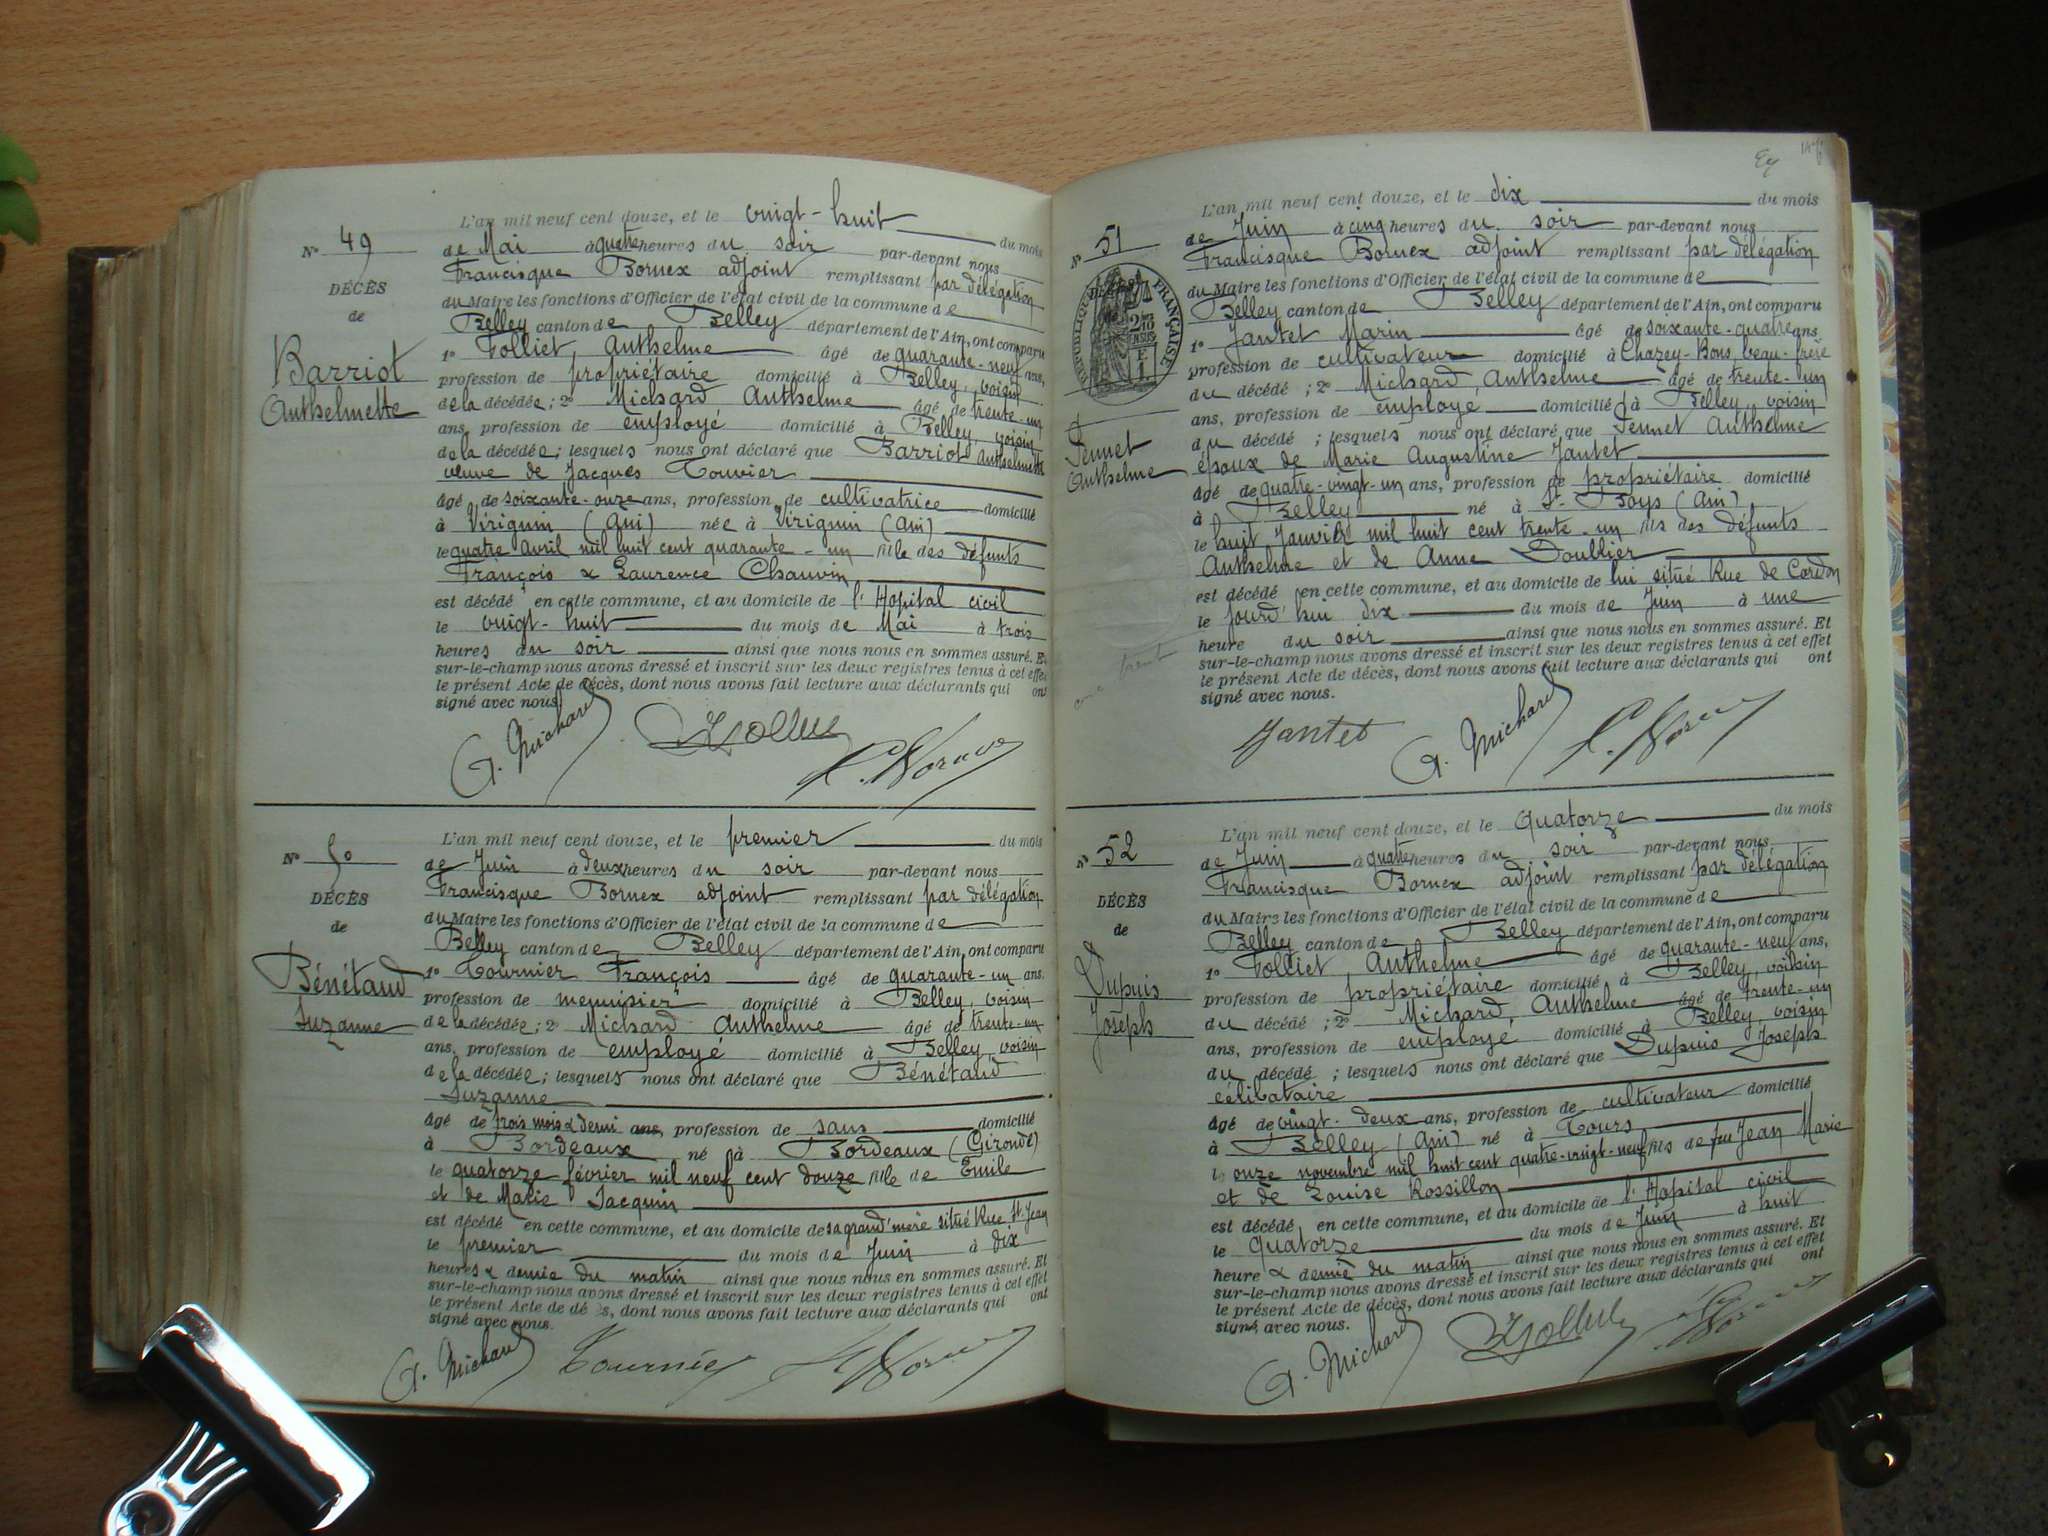 L'an mil neuf cent douze, et le vingt-huit du mois
N° 49
de Mai à quatre heures du soir par-devant nous
Francisque Bornex adjoint remplissant par délégation
DÉCÈS
du Maire les fonctions d'Officier de l'état civil de la commune de
de
Belley canton de Belley département de l'Ain, ont comparu
1° Folliet, Anthelme âgé de quarante-neuf ans,
Barriot
profession de propriétaire domicilié à Belley, voisin
Anthelmette
de la décédée; 2° Michard Anthelme âgé de trente-un
ans, profession de employé domicilié à Belley, voisin
de la décédée; lesquels nous ont déclaré que Barriot Anthelmette
veuve de Jacques Touvier
âgé de soixante-onze ans, profession de cultivatrice domicilié
à Virignin (Ain) née à Virignin (Ain)
le quatre avril mil huit cent quarante-un fille des défunts
François & Laurence Chauvin
est décédé en cette commune, et au domicile de l'Hopital civil
le vingt-huit du mois de Mai à trois
heures du soir ainsi que nous nous en sommes assuré. Et
sur-le-champ nous avons dressé et inscrit sur les deux registres tenus à cet effet
le présent Acte de décès, dont nous avons fait lecture aux déclarants qui ont
signé avec nous.
A. Michard
L'an mil neuf cent douze, et le premier du mois
N° 50
de Juin à deux heures du soir par-devant nous
Francisque Bornex adjoint remplissant par délégation
DÉCÈS
du Maire les fonctions d'Officier de l'état civil de la commune de
de
Belley canton de Belley département de l'Ain, ont comparu
Bénétaud
1° Tournier François âgé de quarante-un ans.
profession de menuisier domicilié à Belley, voisin
Suzanne
de la décédée; 2° Michard Anthelme âgé de trente-un
ans, profession de employé domicilié à Belley, voisin
de la décédée; lesquels nous ont déclaré que Bénétaud
Suzanne
âgé de trois mois & demi ans, profession de sans domicilié
à Bordeaux né à Bordeaux (Gironde)
le quatorze février mil neuf cent douze fille de Emile
et de Marie Jacquin
est décédé en cette commune, et au domicile de sa grand'mère situé Rue St Jean
le premier du mois de Juin à dix
heures & demie du matin ainsi que nous nous en sommes assuré. Et
sur-le-champ nous avons dressé et inscrit sur les deux registres tenus à cet effet
le présent Acte de décès, dont nous avons fait lecture aux déclarants qui ont
signé avec nous.
A. Michard Tournier
L'an mil neuf cent douze, et le dix du mois
N° 51
de Juin à cinq heures du soir par-devant nous
Francisque Bornex adjoint remplissant par délégation
du Maire les fonctions d'Officier de l'état civil de la commune de
RÉPUBLIQUE FRANÇAISE
Belley canton de Belley département de l'Ain, ont comparu
1° Jantet Marin âgé de soixante-quatre ans.
profession de cultivateur domicilié à Chazey-Bons, beau-frère
du décédé; 2° Michard, Anthelme âgé de trente-un
ans, profession de employé domicilié à Belley, voisin
Pennet
Anthelme
du décédé; lesquels nous ont déclaré que Pennet Anthelme
époux de Marie Augustine Jantet
âgé de quatre-vingt-un ans, profession de propriétaire domicilié
à Belley né à St-Boys (Ain)
le huit Janvier mil huit cent trente-un fils des défunts
Anthelme et de Anne Doublier
est décédé en cette commune, et au domicile de lui situé Rue de Cordon
le jourd'hui dix du mois de Juin à une
heure du soir ainsi que nous nous en sommes assuré. Et
sur-le-champ nous avons dressé et inscrit sur les deux registres tenus à cet effet
le présent Acte de décès, dont nous avons fait lecture aux déclarants qui ont
signé avec nous.
Jantet A. Michard
L'an mil neuf cent douze, et le quatorze du mois
N° 52
de Juin à quatre heures du soir par-devant nous
Francisque Bornex adjoint remplissant par délégation
DÉCÈS
du Maire les fonctions d'Officier de l'état civil de la commune de
de
Belley canton de Belley département de l'Ain, ont comparu
1° Folliet, Anthelme âgé de quarante-neuf ans,
Dupuis
profession de propriétaire domicilié à Belley, voisin
Joseph
du décédé; 2° Michard, Anthelme âgé de trente-un
ans, profession de employé domicilié à Belley, voisin
du décédé; lesquels nous ont déclaré que Dupuis Joseph
célibataire
âgé de vingt-deux ans, profession de cultivateur domicilié
à Belley (Ain) né à Tours
le onze novembre mil huit cent quatre-vingt-neuf fils de feu Jean Marie
et de Louise Rossillon
est décédé en cette commune, et au domicile de l'Hopital civil
le quatorze du mois de Juin à huit
heure & demie du matin ainsi que nous nous en sommes assuré. Et
sur-le-champ nous avons dressé et inscrit sur les deux registres tenus à cet effet
le présent Acte de décès, dont nous avons fait lecture aux déclarants qui ont
signé avec nous.
A. Michard